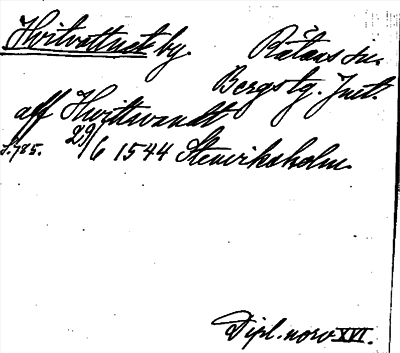 Hvitvattnet by. Rätans sn.
Bergs tg. Jmtl.
aff Hwitwandt
S. 785. 29/6 1544 Stenviksholm.
Dipl. norv XVI.